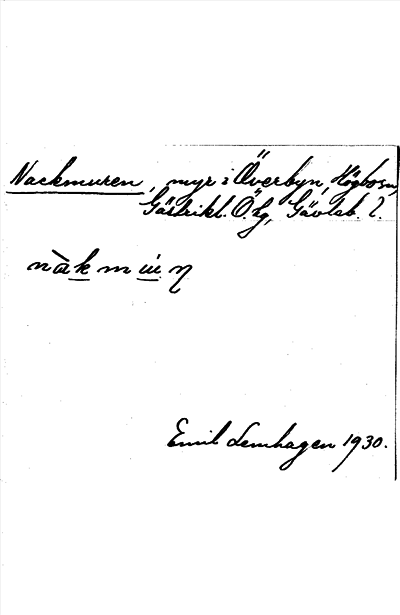 Nackmuren, myr i Överbyn, Högbo sn,
Gästrikl. Ö. tg, Gävleb. l.
nàkmú.n
Emil Lemhagen 1930.